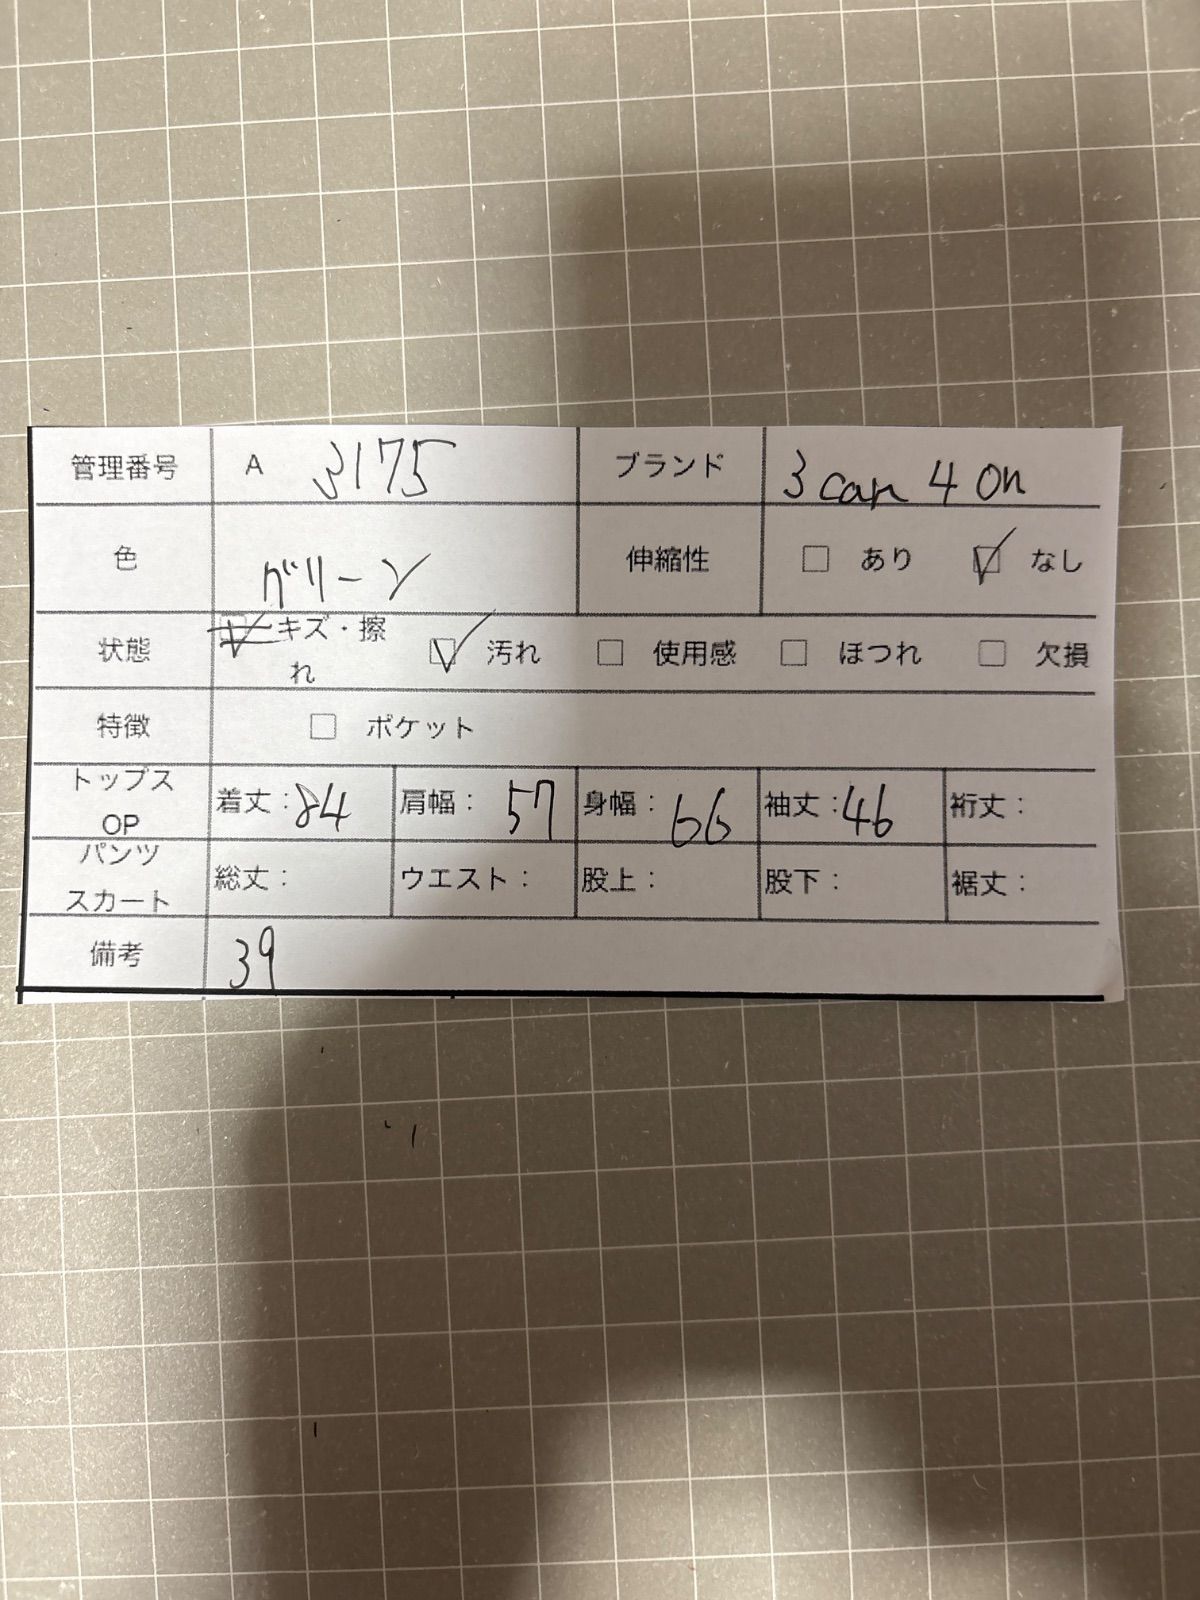 管理番号 A 3175 ブランド 3 can 4 on
色 グリーン 伸縮性 □ あり ☑ なし
状態 ☑ キズ・擦れ ☑ 汚れ □ 使用感 □ ほつれ □ 欠損
特徴 □ ポケット
トップス OP 着丈：84 肩幅：57 身幅：66 袖丈：46 裄丈：
パンツ スカート 総丈： ウエスト： 股上： 股下： 裾丈：
備考 39